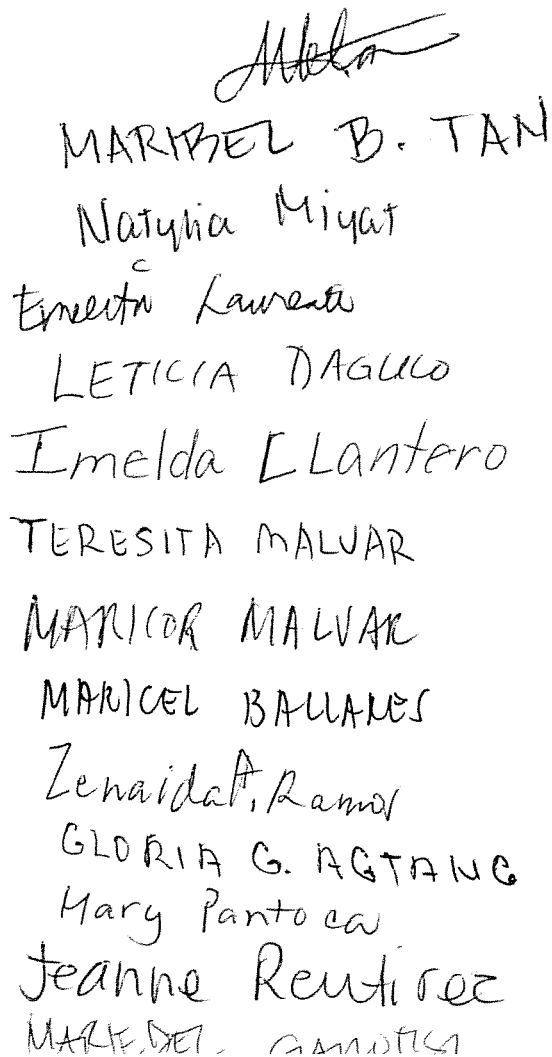 MARIBEL B. TAN
Natylia Miyat
Laurenta
LETICIA DAGUCO
Imelda LLantero
TERESITA MALVAR
MARICOR MALVAR
MARICEL BALLARES
Zenaida A. Ramos
GLORIA G. AGTANG
Mary Pantoca
Jeanne Reutirez